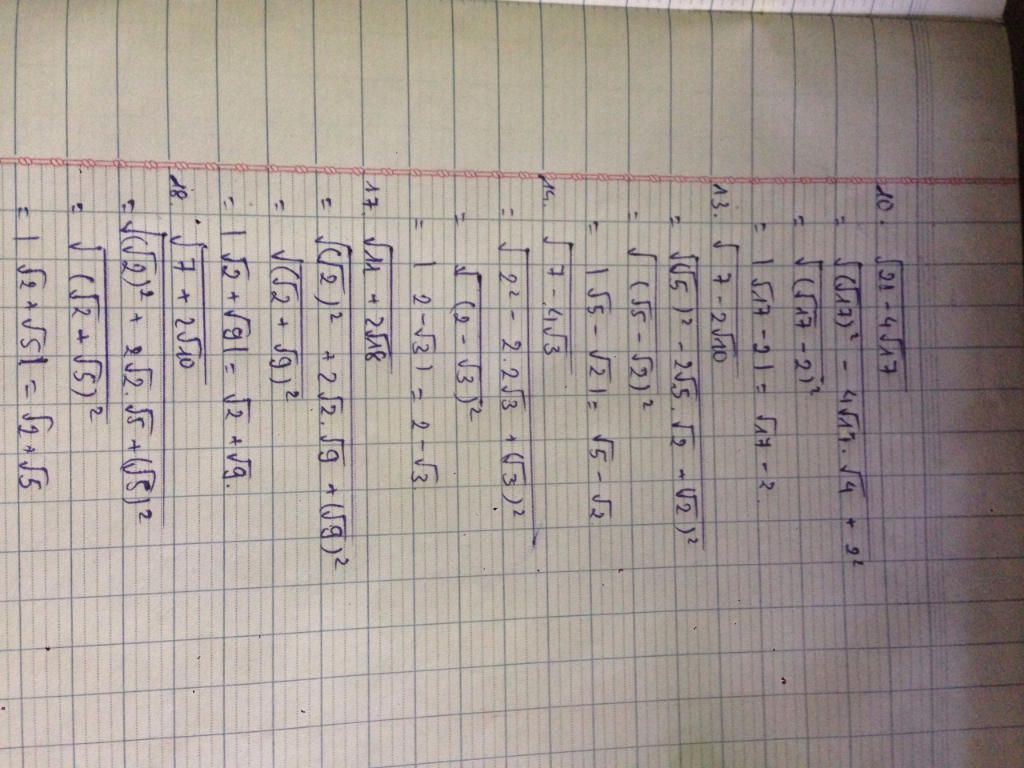 10. √21 - 4√17
= √(√17)² - 4√17.√4 + 2²
= √(√17 - 2)²
= |√17 - 2| = √17 - 2.
13. √7 - 2√10
= √(√5)² - 2√5.√2 + (√2)²
= √(√5 - √2)²
= |√5 - √2| = √5 - √2
14. √7 - 4√3
= √2² - 2.2√3 + (√3)²
= √(2 - √3)²
= |2 - √3| = 2 - √3.
17. √11 + 2√18
= √(√2)² + 2√2.√9 + (√9)²
= √(√2 + √9)²
= |√2 + √9| = √2 + √9.
18. √7 + 2√10
= √(√2)² + 2√2.√5 + (√5)²
= √(√2 + √5)²
= |√2 + √5| = √2 + √5